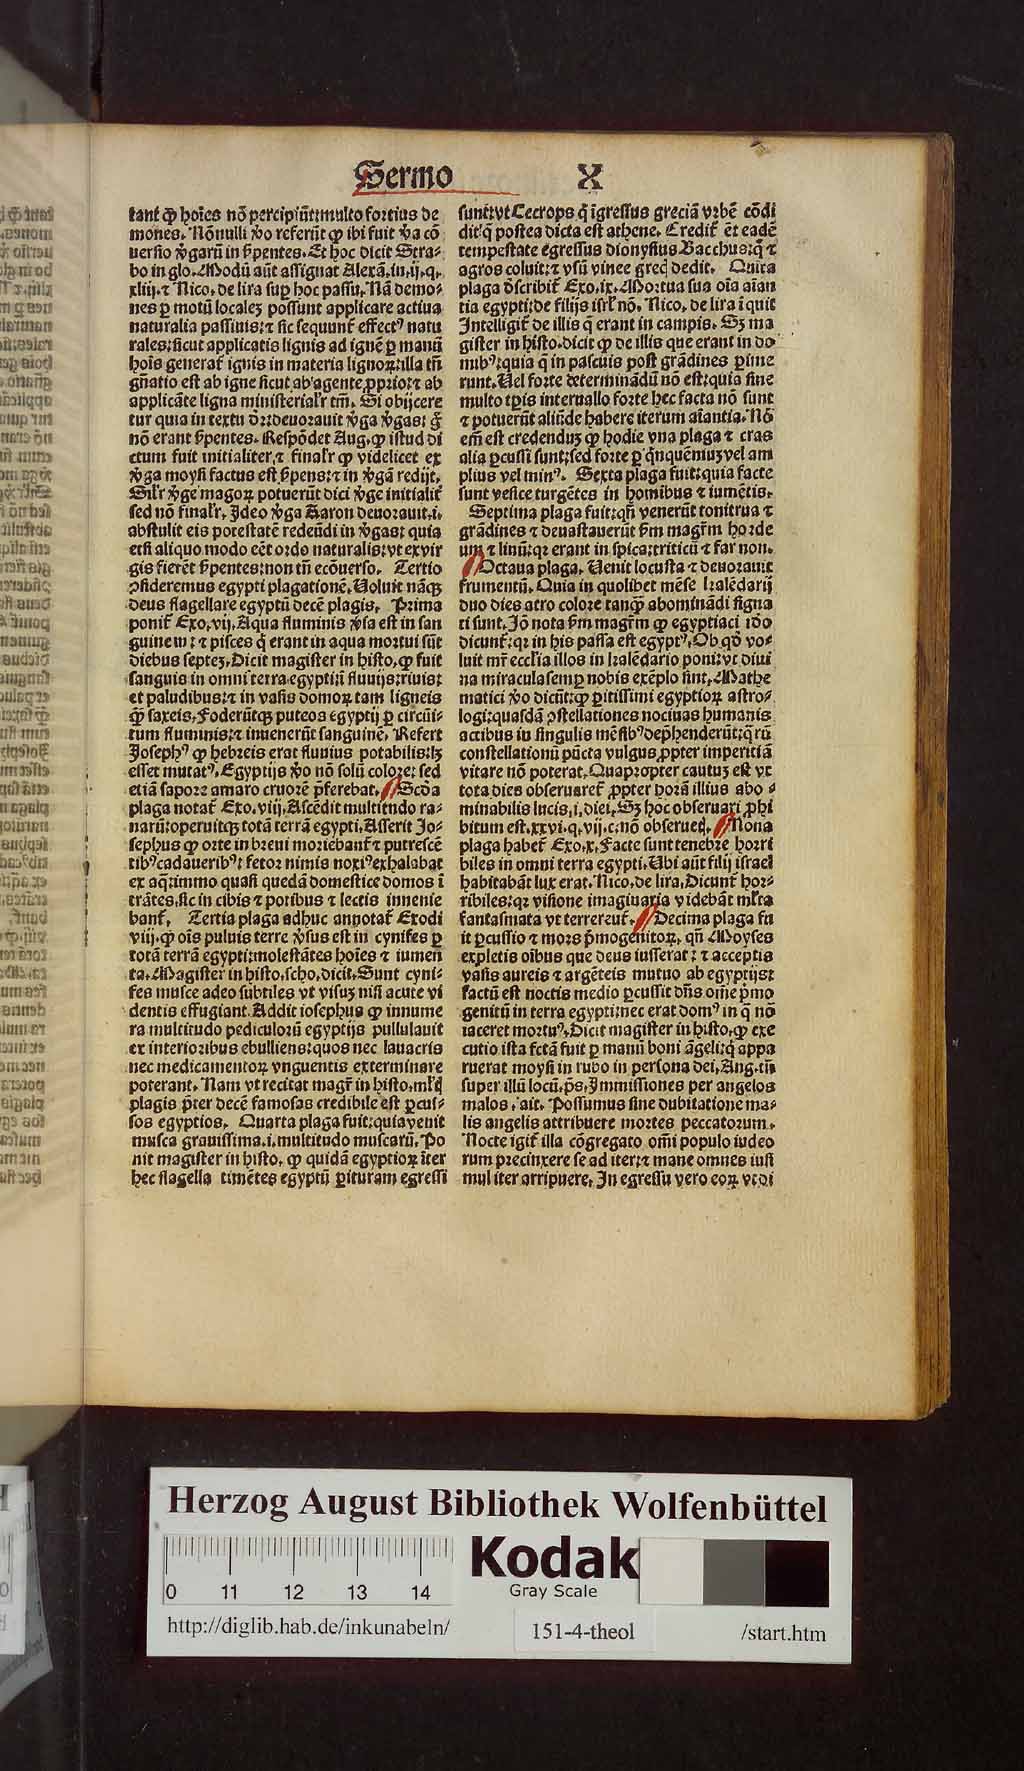 Sermo X
tant ꝙ hoīes nō percipiūt: multo fortius de
mones. Nōnulli ṽo referūt ꝙ ibi fuit ṽa cō
uersio ṽgarū in ſp̄entes. Et hoc dicit Stra-
bo in glo. Modū aūt aſſignat Alexā. in .ij. q.
xliij. ⁊ Nico. de lira ſup hoc paſſu. Nā demo-
nes ꝑ motū localeȝ poſſunt applicare actiua
naturalia paſſiuis: ⁊ ſic ſequunt̄ effectꝰ natu
rales: ſicut applicatis lignis ad ignē ꝑ manū
hoīs generat̄ ignis in materia lignoꝝ: illa tn̄
gn̄atio eſt ab igne ſicut ab agente ꝓprio: ⁊ ab
applicāte ligna miniſterialr̄ tm̄. Si obijcere
tur quia in textu dr̄: deuorauit ṽga ṽgas: g̊
nō erant ſp̄entes. Reſpōdet Aug. ꝙ iſtud di
ctum fuit initialiter, ⁊ finalr̄ ꝙ videlicet ex
ṽga moyſi factus eſt ſp̄ens: ⁊ in ṽgā redijt.
Silr̄ ṽge magoꝝ potuerūt dici ṽge initialit̄
ſed nō finalr̄. Ideo ṽga Aaron deuorauit .i.
abſtulit eis poteſtatē redeūdi in ṽgas: quia
etſi aliquo modo eēt ordo naturalis: vt ex vir
gis fierēt ſp̄entes: non tn̄ ecōuerſo. Tertio
ꝯſideremus egypti plagationē. Uoluit nāqꝫ
deus flagellare egyptū decē plagis. Prima
ponit̄ Exo. vij. Aqua fluminis ṽſa eſt in ſan
guinem: ⁊ piſces q̄ erant in aqua mortui ſūt
diebus ſepteȝ. Dicit magiſter in hiſto. ꝙ fuit
ſanguis in omni terra egypti: ī fluuijs: riuis:
et paludibus: ⁊ in vaſis domoꝝ tam ligneis
q̄ꝫ ſaxeis. Foderūtqꝫ puteos egyptij ꝑ circūi-
tum fluminis: ⁊ inuenerūt ſanguinē. Refert
Joſephꝰ ꝙ hebreis erat fluuius potabilis: lꝫ
eſſet mutatꝰ. Egyptijs ṽo nō ſolū colore: ſed
etiā ſapore amaro cruorē p̄ferebat. Scd̄a
plaga notat̄ Exo. viij. Aſcēdit multitudo ra-
narū: operuitqꝫ totā terrā egypti. Aſſerit Jo-
ſephus ꝙ orte in breui moriebant̄ ⁊ putreſcē
tibꝰ cadaueribꝰ: fetor nimis noxiꝰ exhalabat
ex aq̄: immo quaſi quedā domeſtice domos ī
trātes, ſic in cibis ⁊ potibus ⁊ lectis inuenie
bant̄. Tertia plaga adhuc annotat̄ Exodi
viij. ꝙ oīs puluis terre ṽſus eſt in cynifes ꝑ
totā terrā egypti: moleſtātes hoīes ⁊ iumen
ta. Magiſter in hiſto. ſcho. dicit. Sunt cyni-
fes muſce adeo ſubtiles vt viſuȝ niſi acute vi
dentis effugiant. Addit ioſephus ꝙ innume
ra multitudo pediculorū egyptijs pullulauit
ex interioribus ebulliens: quos nec lauacris
nec medicamentoꝝ vnguentis exterminare
poterant. Nam vt recitat magr̄ in hiſto. ml̄tꝫ
plagis p̄ter decē famoſas credibile eſt ꝑcuſ-
ſos egyptios. Quarta plaga fuit: quia venit
muſca grauiſſima .i. multitudo muſcarū. Po
nit magiſter in hiſto. ꝙ quidā egyptioꝝ īter
hec flagella timētes egyptū ꝑituram egreſſi
ſunt: vt Cecrops q̄ īgreſſus greciā vrbē cōdi
dit: q̄ poſtea dicta eſt athene. Credit̄ ēt eadē
tempeſtate egreſſus dionyſius Bacchus: q̄ ⁊
agros coluit: ⁊ vſū vinee grecꝫ dedit. Quīta
plaga d̄ſcribit̄ Exo. ix. Mortua ſūa oīa aīan
tia egypti: de filijs iſrl̄ nō. Nico. de lira īquit
Intelligit̄ de illis q̄ erant in campis. Sꝫ ma
giſter in hiſto. dicit ꝙ de illis que erant in do
mibꝰ: quia q̄ in paſcuis poſt grādines ꝑime
runt. Uel forte determināduȝ nō eſt: quia ſine
multo tp̄is interuallo forte hec facta nō ſunt
⁊ potuerūt aliūde habere iterum aīantia. Nō
em̄ eſt credenduȝ ꝙ hodie vna plaga ⁊ cras
alia ꝑcuſſi ſunt: ſed forte ꝑ q̄nquēniuȝ vel am
plius vel minꝰ. Sexta plaga fuit: quia facte
ſunt veſice turgētes in homībus ⁊ iumētis.
Septima plaga fuit: qn̄ venerūt tonitrua ⁊
grādines ⁊ deuaſtauerūt ẜm magr̄m horde
um ⁊ linū: qꝛ erant in ſpica: triticū ⁊ far non.
Octaua plaga. Uenit locuſta ⁊ deuorauit
frumentū. Quia in quolibet mēſe kalēdarij
duo dies atro colore tanqꝫ abomināndi ſigna
ti ſunt. Jō nota ẜm magr̄m ꝙ egyptiaci idō
dicunt̄: qꝛ in his paſſa eſt egyptꝰ. Ob qd̄ vo-
luit mr̄ eccl̄ia illos in kalēdario poni: vt diui
na miracula ſemꝑ nobis exēplo ſint. Mathe
matici ṽo dicūt: ꝙ ꝑitiſſimi egyptioꝝ aſtro-
logi: quaſdā ꝯſtellationes nociuas humanis
actibus in ſingulis mēſibꝰ dep̄henderūt: q̄rū
conſtellationū pūcta vulgus ꝓpter imperitiā
vitare nō poterat. Quapropter cautuȝ eſt vt
tota dies obſeruaret̄ ꝓpter horā illius abo-
minabilis lucis .i. diei. Sꝫ hoc obſeruari ꝓhi
bitum eſt. xxvi. q. vij. c. nō obſeruetꝫ. Nona
plaga habet̄ Exo. x. Facte ſunt tenebre horri
biles in omni terra egypti. Ubi aūt filij iſrael
habitabāt lux erat. Nico. de lira. Dicunt̄ hor-
ribiles: qꝛ viſione imaginaria videbāt ml̄ta
fantaſmata vt terrerent̄. Decima plaga fu
it ꝑcuſſio ⁊ mors p̄mogenitoꝝ. qn̄ Moyſes
expletis oībus que deus iuſſerat: ⁊ acceptis
vaſis aureis ⁊ argēteis mutuo ab egyptijs:
factū eſt noctis medio ꝑcuſſit dn̄s om̄e p̄mo
genitū in terra egypti: nec erat domꝰ in q̄ nō
iaceret mortuꝰ. Dicit magiſter in hiſto. ꝙ exe
cutio iſta fctā fuit ꝑ manū boni āgeli: q̄ appa
ruerat moyſi in rubo in perſona dei. Aug. tn̄
ſuper illū locū. ps̄. Immiſſiones per angelos
malos. ait. Poſſumus ſine dubitatione ma-
lis angelis attribuere mortes peccatorum.
Nocte igit̄ illa cōgregato om̄i populo iudeo
rum precinxere ſe ad iter: ⁊ mane omnes iuſi
mul iter arripuere. In egreſſu vero eoꝝ vt di
Herzog August Bibliothek Wolfenbüttel
0 11 12 13 14
Kodak
Gray Scale
http://diglib.hab.de/inkunabeln/ 151-4-theol /start.htm